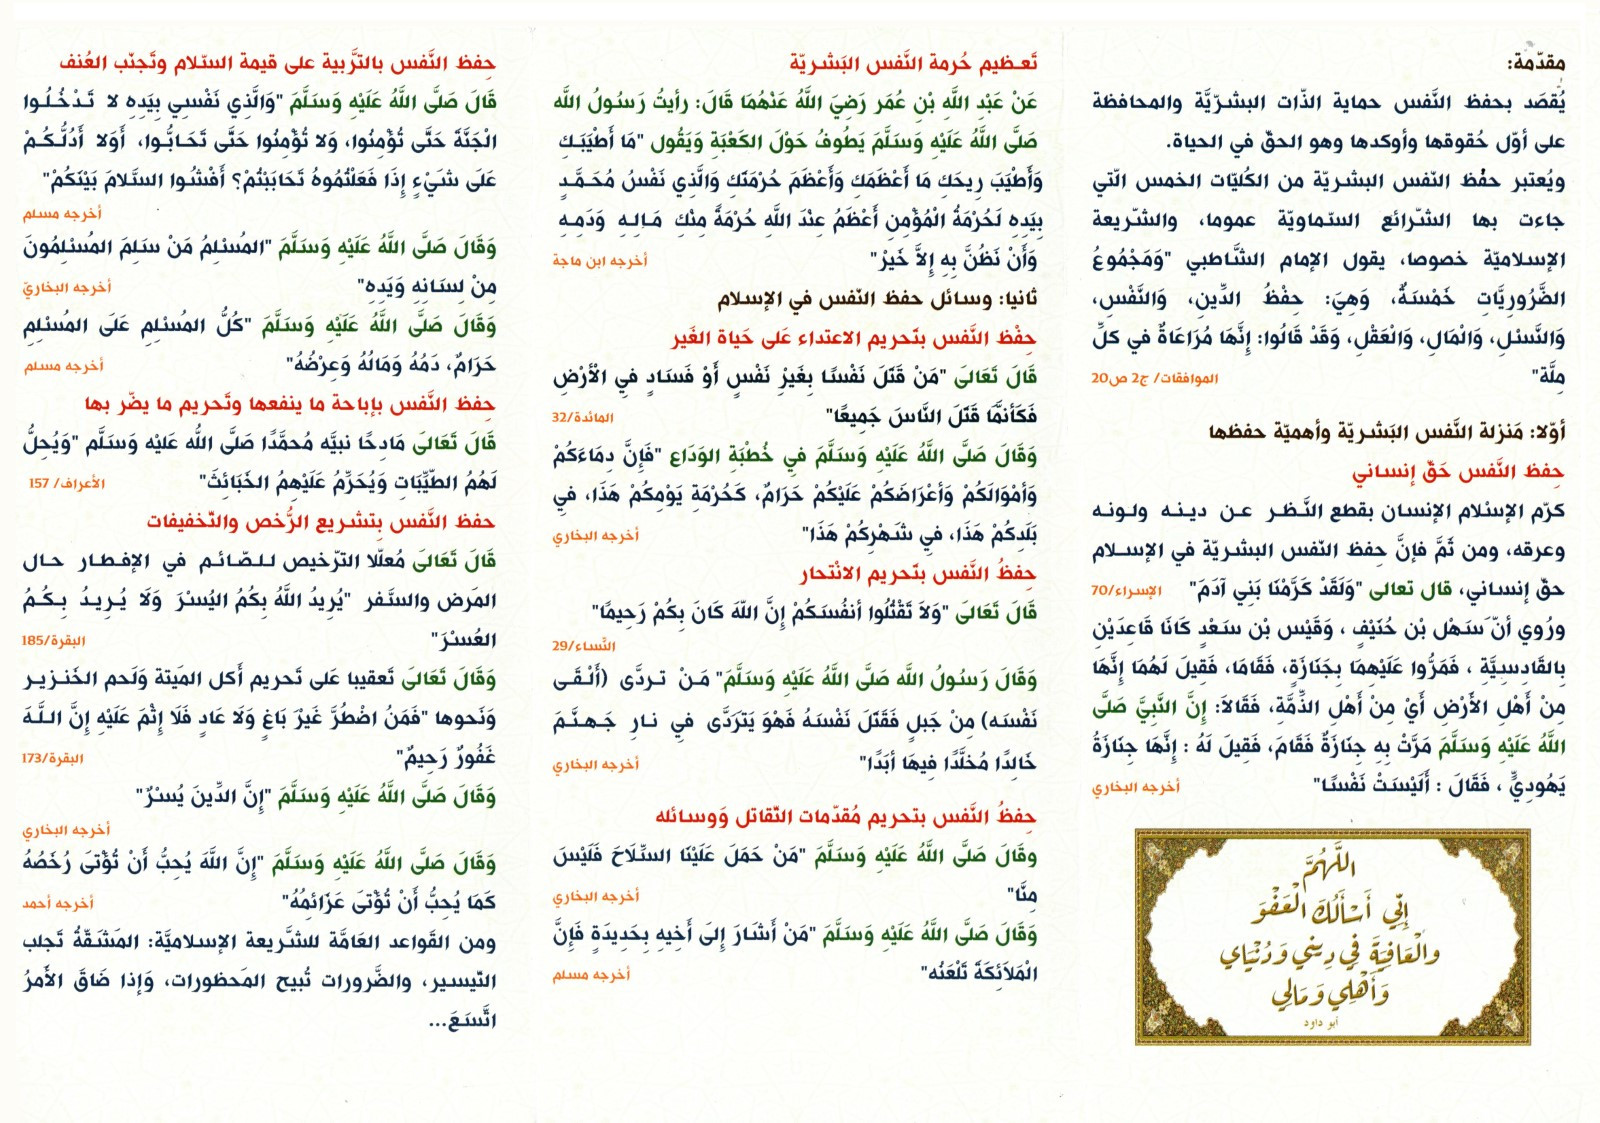 مقدّمة:
يُقصَد بحفظ النَّفس حماية الذّات البشريَّة والمحافظة
على أوّل حُقوقها وأوكدها وهو الحقّ في الحياة.
ويُعتبر حفْظ النّفس البشريّة من الكُليّات الخمس الّتي
جاءت بها الشّرائع السّماويّة عموما، والشّريعة
الإسلاميّة خصوصا، يقول الإمام الشَّاطبي "وَمَجْمُوعُ
الضَّرُورِيَّاتِ خَمْسَةٌ، وَهِيَ: حِفْظُ الدِّينِ، وَالنَّفْسِ،
وَالنَّسْلِ، وَالْمَالِ، وَالْعَقْلِ، وَقَدْ قَالُوا: إِنَّهَا مُرَاعَاةٌ في كلِّ
مِلَّة" الموافقات/ ج2 ص20
أوّلا: مَنزلة النَّفس البَشريّة وأهميّة حفظها
حِفظ النَّفس حَقّ إنساني
كرّم الإسْلام الإنسان بقطع النَّظر عن دينه ولونه
وعرقه، ومن ثَمَّ فإنَّ حِفظ النّفس البشريّة في الإسلام
حقّ إنساني، قال تعالى "وَلَقَدْ كَرَّمْنَا بَنِي آدَمَ" الإسراء/70
ورُوي أنّ سَهْل بْن حُنَيْف ، وَقَيْس بْن سَعْدٍ كَانَا قَاعِدَيْنِ
بِالقَادِسِيَّةِ ، فَمَرُّوا عَلَيْهِمَا بِجَنَازَةٍ، فَقَامَا، فَقِيلَ لَهُمَا إِنَّهَا
مِنْ أَهْلِ الأَرْضِ أَيْ مِنْ أَهْلِ الذِّمَّةِ، فَقَالاَ: إِنَّ النَّبِيَّ صَلَّى
اللَّهُ عَلَيْهِ وَسَلَّمَ مَرَّتْ بِهِ جِنَازَةٌ فَقَامَ، فَقِيلَ لَهُ : إِنَّهَا جِنَازَةُ
يَهُودِيٍّ ، فَقَالَ : أَلَيْسَتْ نَفْسًا" أخرجه البخاري
اللَّهُمَّ
إِنِّي أَسْأَلُكَ الْعَفْوَ
وَالْعَافِيَةَ فِي دِينِي وَدُنْيَاي
وَأَهْلِي وَمَالِي
أبو داود
تَعـظيم حُرمة النَّفس البَشريّة
عَنْ عَبْدِ اللَّهِ بْنِ عُمَر رَضِيَ اللَّهُ عَنْهُمَا قَالَ: رأيتُ رَسُولُ اللَّه
صَلَّى اللَّهُ عَلَيْهِ وَسَلَّمَ يَطُوفُ حَوْلَ الكَعْبَةِ وَيَقُول "مَا أَطْيَبَـكِ
وَأَطْيَبَ رِيحَكِ مَا أَعْظَمَكِ وَأَعْظَمَ حُرْمَتَكِ وَالَّذِي نَفْسُ مُحَـمَّـدٍ
بِيَدِهِ لَحُرْمَةُ الْمُؤْمِنِ أَعْظَمُ عِنْدَ اللَّهِ حُرْمَةً مِنْكِ مَـالِـهِ وَدَمِـهِ
وَأَنْ نَظُنَّ بِهِ إِلاَّ خَيْرً" أخرجه ابن ماجة
ثانيا: وسائل حفظ النّفس في الإسلام
حِفْظ النَّفس بتَحريم الاعتداء عَلى حَياة الغَير
قَالَ تَعَالَى "مَنْ قَتَلَ نَفْسًا بِغَيْرِ نَفْسٍ أَوْ فَسَادٍ فِي الْأَرْضِ
فَكَأَنمَّا قَتَلَ النَّاسَ جَمِيعًا" المائدة/32
وَقَالَ صَلَّى اللَّهُ عَلَيْهِ وَسَلَّمَ في خُطْبَةِ الوَدَاع "فَإِنَّ دِمَاءَكُمْ
وَأَمْوَالَكُمْ وَأَعْرَاضَكُمْ عَلَيْكُمْ حَرَامٌ، كَحُرْمَةِ يَوْمِكُمْ هَذَا، فِي
بَلَدِكُمْ هَذَا، فِي شَهْرِكُمْ هَذَا" أخرجه البخاري
حِفظُ النَّفس بتَحريم الانْتحار
قَالَ تَعَالَىَ "وَلاَ تَقْتُلُوا أنفُسَكُمْ إِنَّ اللّهَ كَانَ بِكُمْ رَحِيمًا"
النّساء/29
وَقَالَ رَسُولُ اللَّه صَلَّى اللَّهُ عَلَيْهِ وَسَلَّمَ" مَـنْ تـردَّى (أَلْـقَـى
نَفْسَه) مِنْ جَبلٍ فَقَتَلَ نَفْسَهُ فَهْوَ يَتَرَدَّى في نـارِ جَـهـنَّـمَ
خَالِدًا مُخلَّدًا فيهَا أبَدًا" أخرجه البخاري
حِفظُ النَّفس بتحريم مُقدّمات التّقاتل وَوسائله
وقَالَ صَلَّى اللَّهُ عَلَيْهِ وَسَلَّمَ "مَنْ حَمَلَ عَلَيْنَا السِّلَاحَ فَلَيْسَ
مِنَّا" أخرجه البخاري
وَقَالَ صَلَّى اللَّهُ عَلَيْهِ وَسَلَّمَ "مَنْ أَشَارَ إِلَى أَخِيهِ بِحَدِيدَةٍ فَإِنَّ
الْمَلاَئِكَةَ تَلْعَنُه" أخرجه مسلم
حِفظ النَّفس بالتَّربية على قيمة السّلام وتَجنّب العُنف
قَالَ صَلَّى اللَّهُ عَلَيْهِ وَسَلَّمَ "وَالَّذِي نَفْسِي بِيَدِهِ لا تَـدْخُـلُـوا
الْجَنَّةَ حَتَّى تُؤْمِنُوا، وَلا تُؤْمِنُوا حَتَّى تَحَـابُّـوا، أَوَلا أَدُلُّـكُـمْ
عَلَى شَيْءٍ إِذَا فَعَلْتُمُوهُ تَحَابَبْتُمْ؟ أَفْشُوا السَّلامَ بَيْنَكُمْ"
أخرجه مسلم
وَقَالَ صَلَّى اللَّهُ عَلَيْهِ وَسَلَّمَ "المُسْلِمُ مَنْ سَلِمَ المُسْلِمُونَ
مِنْ لِسَانِهِ وَيَدِهِ" أخرجه البخاريّ
وَقَالَ صَلَّى اللَّهُ عَلَيْهِ وَسَلَّمَ "كُلُّ المُسْلِمِ عَلَى المُسْلِمِ
حَرَامٌ، دَمُهُ وَمَالُهُ وَعِرْضُهُ" أخرجه مسلم
حِفظ النَّفس بإباحة ما ينفعها وتَحريم ما يضّر بها
قَالَ تَعَالَىَ مَادِحًا نبيَّه مُحمَّدًا صَلَّى اللّه عَليْه وَسَلَّم "وَيُحِلُّ
لَهُمُ الطّيِّبَاتِ وَيُحَرِّمُ عَلَيْهِمُ الخَبَائِثَ" الأعراف/ 157
حفظ النَّفس بِتشريع الرُّخص والتّخفيفات
قَالَ تَعَالَىَ مُعلّلا التّرخيص للصّائم في الإفـطار حـال
المَرض والسَّفر "يُرِيدُ اللَّهُ بِكُمُ اليُسْرَ وَلَا يُـرِيـدُ بِـكُـمُ
العُسْرَ" البقرة/185
وَقَالَ تَعَالَىَ تَعقيبا عَلى تَحريم أكل المَيتة وَلَحم الخَنـزيـر
وَنَحوها "فَمَنُ اضْطُرَّ غَيْرَ بَاغٍ وَلَا عَادٍ فَلَا إِثْمَ عَلَيْهِ إِنَّ الـلَّـهَ
غَفُورٌ رَحِيمٌ" البقرة/173
وَقَالَ صَلَّى اللَّهُ عَلَيْهِ وَسَلَّمَ "إِنَّ الدِّينَ يُسْرٌ"
أخرجه البخاري
وَقَالَ صَلَّى اللَّهُ عَلَيْهِ وَسَلَّمَ "إِنَّ اللَّهَ يُحِبُّ أَنْ تُؤْتىَ رُخَصُهُ
كَمَا يُحِبُّ أَنْ تُؤْتىَ عَزَائِمُهُ" أخرجه أحمد
ومن القَواعد العَامَّة للشَّريعة الإسلاميَّة: المَشَقّةُ تَجلب
التّيسير، والضَّرورات تُبيح المَحظورات، وَإذا ضَاقَ الأَمرُ
اتَّسَعَ...